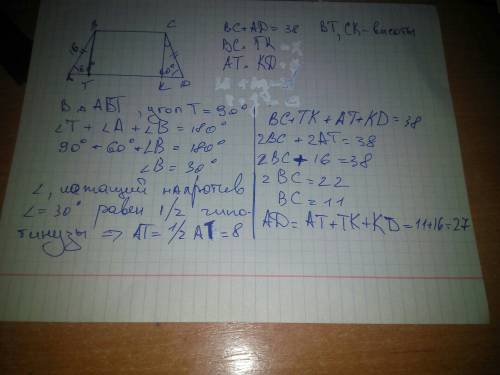 B C
16
60° 60°
A T K D
BC+AD=38
BC= TK
AT= KD
BT, CK - высоты
В △ ABT, угол T=90°
∠T+∠A+∠B=180°
90°+60°+∠B=180°
∠B=30°
∠, лежащий напротив
∠=30° равен 1/2 гипо-
тинузы ⇒ AT=1/2 AT=8
BC+TK+AT+KD=38
2BC+2AT=38
2BC+16=38
2BC=22
BC=11
AD=AT+TK+KD=11+16=27